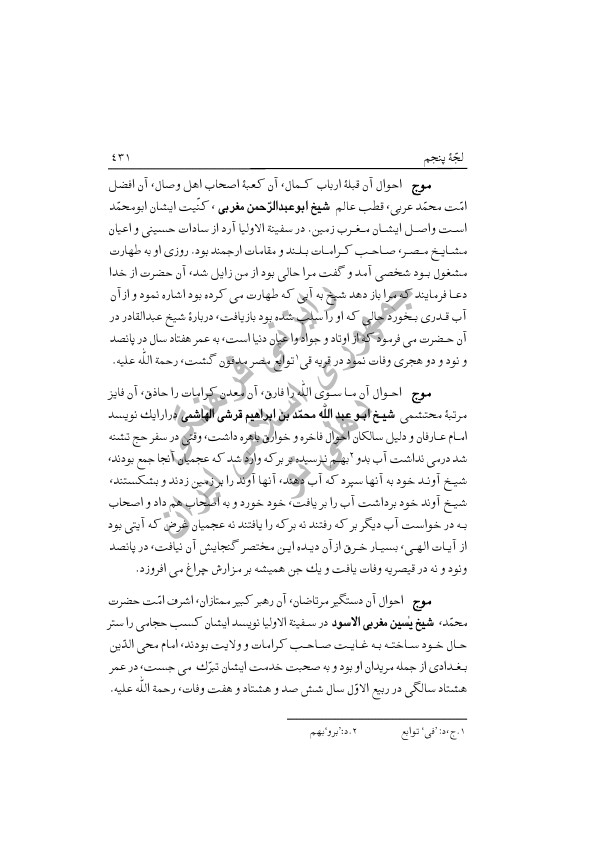 لجّهٔ پنجم ٤٣١
موج احوال آن قبلهٔ ارباب کمال، آن کعبهٔ اصحاب اهل وصال، آن افضل
امّت محمّد عربی، قطب عالم شیخ ابوعبدالرّحمن مغربی، کنّیت ایشان ابومحمّد
است واصل ایشان مغرب زمین. در سفینة الاولیا آرد از سادات حسینی و اعیان
مشایخ مصر، صاحب کرامات بلند و مقامات ارجمند بود. روزی او به طهارت
مشغول بود شخصی آمد و گفت مرا حالی بود از من زایل شد، آن حضرت از خدا
دعا فرمایند که مرا باز دهد شیخ به آبی که طهارت می کرده بود اشاره نمود و ازآن
آب قدری بخورد حالی که او را سلب شده بود بازیافت، دربارهٔ شیخ عبدالقادر در
آن حضرت می فرمود که از اوتاد و جواد واعیان دنیا است، به عمر هفتاد سال در پانصد
و نود و دو هجری وفات نمود در قریه قی۱ توابع مصر مدفون گشت، رحمة الله علیه.
موج احوال آن ما سوی الله را فارق، آن معدن کرامات را حاذق، آن فایز
مرتبهٔ محتشمی شیخ ابو عبد الله محمّد بن ابراهیم قرشی الهاشمی درارایك نویسد
امام عارفان و دلیل سالکان احوال فاخره و خوارق باهره داشت، وقتی در سفر حج تشنه
شد درمی نداشت آب بدو۲بهم نرسیده بر برکه وارد شد که عجمیان آنجا جمع بودند،
شیخ آوند خود به آنها سپرد که آب دهند، آنها آوند را بر زمین زدند و بشکستند،
شیخ آوند خود برداشت آب را بر یافت، خود خورد و به اصحاب هم داد و اصحاب
به در خواست آب دیگر بر که رفتند نه برکه را یافتند نه عجمیان غرض که آیتی بود
از آیات الهی، بسیار خرق ازآن دیده این مختصر گنجایش آن نیافت، در پانصد
ونود و نه در قیصریه وفات یافت و یك جن همیشه بر مزارش چراغ می افروزد.
موج احوال آن دستگیر مرتاضان، آن رهبر کبیر ممتازان، اشرف امّت حضرت
محمّد، شیخ یٰسین مغربی الاسود در سفینة الاولیا نویسد ایشان کسب حجامی را ستر
حال خود ساخته به غایت صاحب کرامات و ولایت بودند، امام محی الدّین
بغدادی از جمله مریدان او بود و به صحبت خدمت ایشان تبرّك می جست، در عمر
هشتاد سالگی در ربیع الاوّل سال شش صد و هشتاد و هفت وفات، رحمة الله علیه.
۱.ج،د: ’فی‘ توابع ۲.د:’برو‘بهم
رایزنی فرهنگی
جمهوری اسلامی ایران
دهلی نو